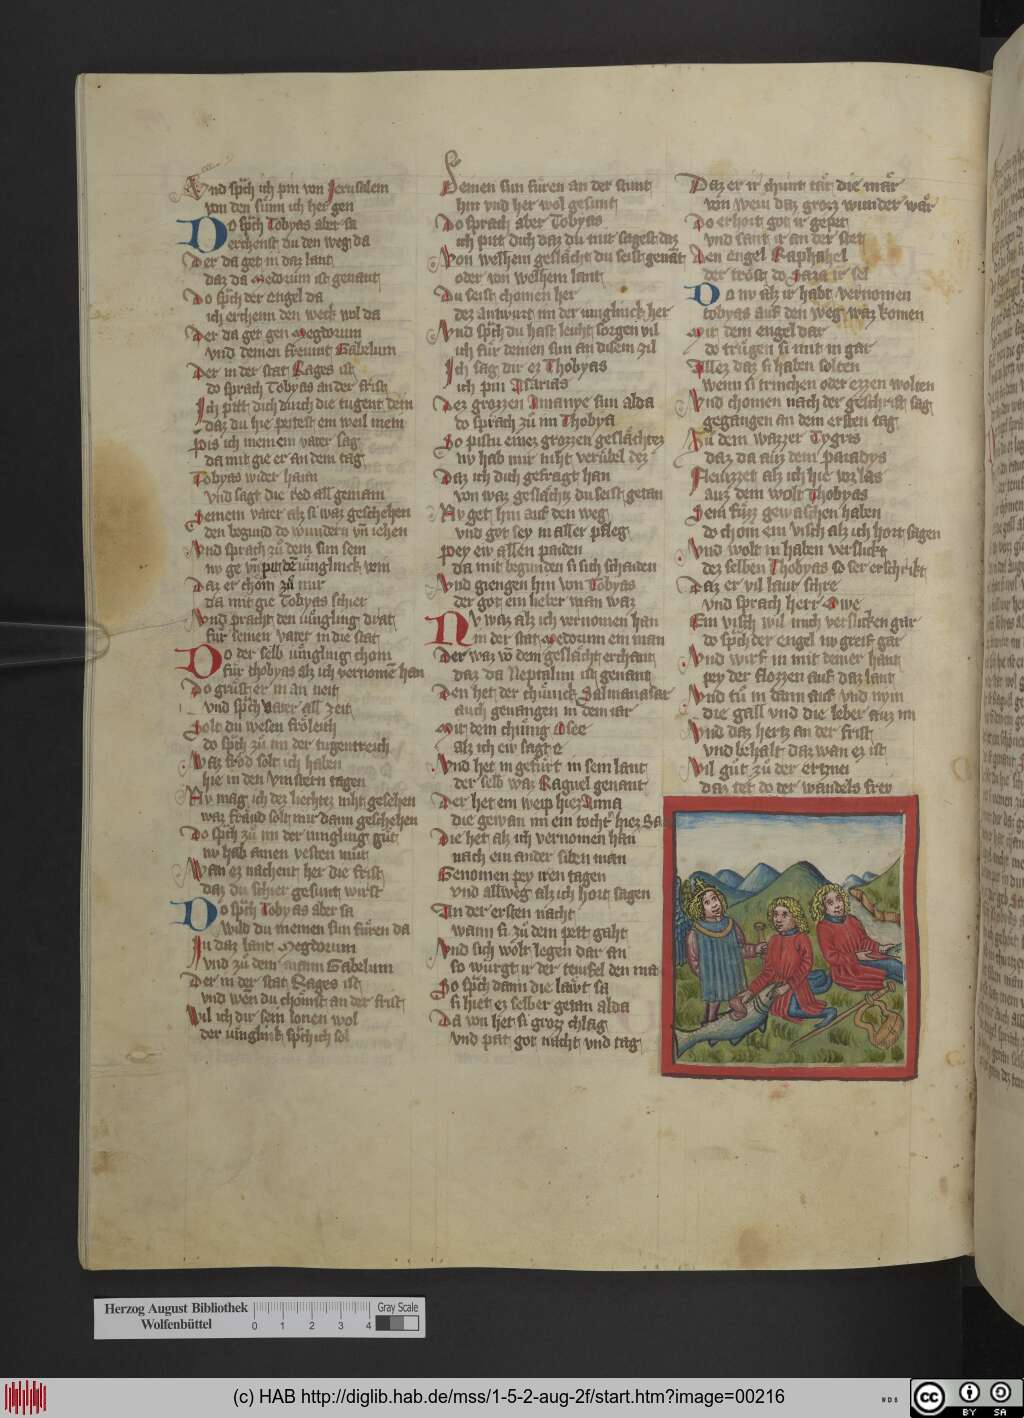 Vnd sp̄ch ich pin von Jerusalem
von den sünn ich her gen
Do sp̄ch Tobyas aber sa
erchenst du den weg da
Der da get in daz lant
daz da Medorum ist genant
Do sp̄ch der engel da
ich erchenn den weck wol da
Der da get gen Megdorum
vnd deinen freunt Gabelum
Der in der stat Rages ist
do sprach Tobyas an der frist
Ich pitt dich durch die tugent dein
daz du hie peitest ein weil mein
Pis ich meinem vater sag
da mit gie er an dem tag
Tobyas wider hann
vnd sagt die red all gemain
Seinem vater alz si waz geschehen
den begund do wundern vn̄ iehen
Vnd sprach zů dem sun sein
ny ge vn̄ pit dē iüngling vein
Daz er chöm zů mir
da mit gie Tobyas schier
Vnd pracht den iüngling drat
für seinen vater in die stat
Do der selb iüngling chom
für thobyas alz ich vernomē han
Do grüst er in an neit
vnd sp̄ch vater all zeit
Solt du wesen frölich
do sp̄ch zů im der tugentreich
Waz fröd solt ich haben
hie in den vinstern tagen
Ny mag ich dez liechtez niht gesehen
waz fräud solt mir dann geschehen
Do sp̄ch zů im der iüngling gůt
ny hab ainen vesten můt
Wan ez nachent her die frist
daz du schier gesunt wirst
Do sp̄ch Tobyas aber sa
wild du meinen sun füren da
In daz lant Megdorum
vnd zů dem mann Gabelum
Der in der stat Rages ist
vnd wēn du chömst an der frist
Wil ich dir sein lonen wol
der iüngling sp̄ch ich sol
Deinen sun füren an der stunt
hin vnd her wol gesunt
Do sprach aber Tobyas
ich pitt dich daz du mir sagest daz
Von welhem geslächt du seist genāt
oder von welhem lant
Du seist chomen her
dez antwurt im der iüngling her
Vnd sp̄ch du hast leicht sorgen vil
ich für deinen sun an disem zil
Ich sag dir ez Thobyas
ich pin Asarias
Dez grozzen Ananye sun alda
do sprach zů im Thobya
So pistu einez grozzen geslächtez
ny hab mir niht verübel dez
Daz ich dich gefragt han
von waz geslächtz du seist getan
Ny get hin auf den weg
vnd got sey in aller pfleg
Pey ew allen paiden
da mit begunden si sich schaiden
Vnd giengen hin von Tobyas
der got ein lieber man waz
Ny waz alz ich vernomen han
in der stat Medorum ein man
Der waz vō dem geslächt erchant
daz da Neptalim ist genant
Den het der chünick Salmanasar
auch geuangen in dem iar
Mit dem chünig Osee
alz ich ew sagt e
Vnd het in gefürt in sein lant
der selb waz Raguel genant
Der het ein weip hiez Anna
die gewan im ein tocht' hiez Sa
Die het alz ich vernomen han
nach ein ander siben man
Genomen pey iren tagen
vnd allweg alz ich hort sagen
An der ersten nacht
wann si zů dem pett gaht
Vnd sich wolt legen dar an
so würgt ir der teufel den man
So sp̄ch dann die läwt sa
si hiet ez selber getan alda
Da von het si grozz chlag
vnd pat got nacht vnd tag
Daz er ir chünt tät die mär
von wem daz grozz wunder wär
Do erhort got ir gepet
vnd sant ir an der stet
Den engel Raphahel
der tröst do Sara ir sel
Do ny alz ir habt vernomen
tobyas auf den weg waz komen
Mit dem engel dar
do trügen si mit in gar
Allez daz si haben solten
wenn si trinchen oder ezzen wolten
Vnd chomen nach der geschrift sag
gegangen an dem ersten tag
Zů dem wazzer Tygris
daz da auz dem paradys
Fleuzzet alz ich hie vor las
auz dem wolt Thobyas
Sein füzz gewaschen haben
do chom ein visch alz ich hort sagen
Vnd wolt in haben verslickt
dez selben Thobyas so ser erschrikt
Daz er vil laut schre
vnd sprach herr Owe
Ein visch wil mich verslicken gar
do sp̄ch der engel ny greif gar
Vnd wirf in mit deiner hant
pey der flozzen auf daz lant
Vnd tů in dann auf vnd nym
die gall vnd die leber auz im
Vnd daz hertz an der frist
vnd behalt daz wan ez ist
Vil gůt zů der ertznei
daz tet do der wandels frey
Herzog August Bibliothek
Wolfenbüttel
0 1 2 3 4
Gray Scale
(c) HAB http://diglib.hab.de/mss/1-5-2-aug-2f/start.htm?image=00216
WDB
cc BY SA